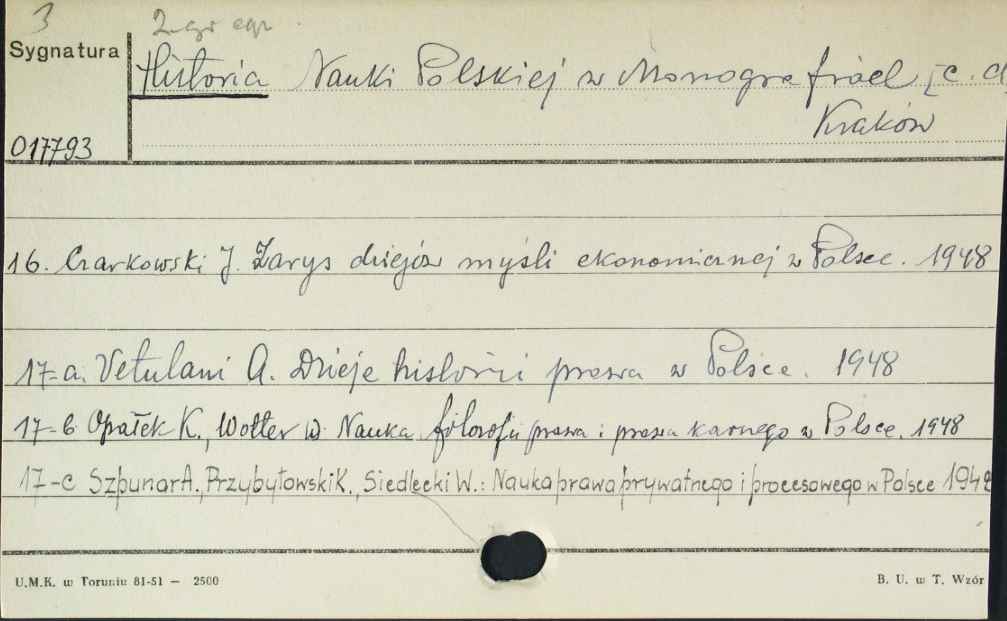 3 2-gi egz.
Sygnatura
Historia Nauki Polskiej w Monografiach [c. d
Kraków
017793
16. Czarkowski J. Zarys dziejów myśli ekonomicznej w Polsce. 1948
17-a. Vetulani A. Dzieje historii prawa w Polsce. 1948
17-b Opałek K., Wolter W. Nauka filozofii prawa i prawa karnego w Polsce. 1948
17-c Szpunar A., Przybyłowski K., Siedlecki W.: Nauka prawa prywatnego i procesowego w Polsce 1948
U.M.K. w Toruniu 81-51 — 2500
B. U. w T. Wzór